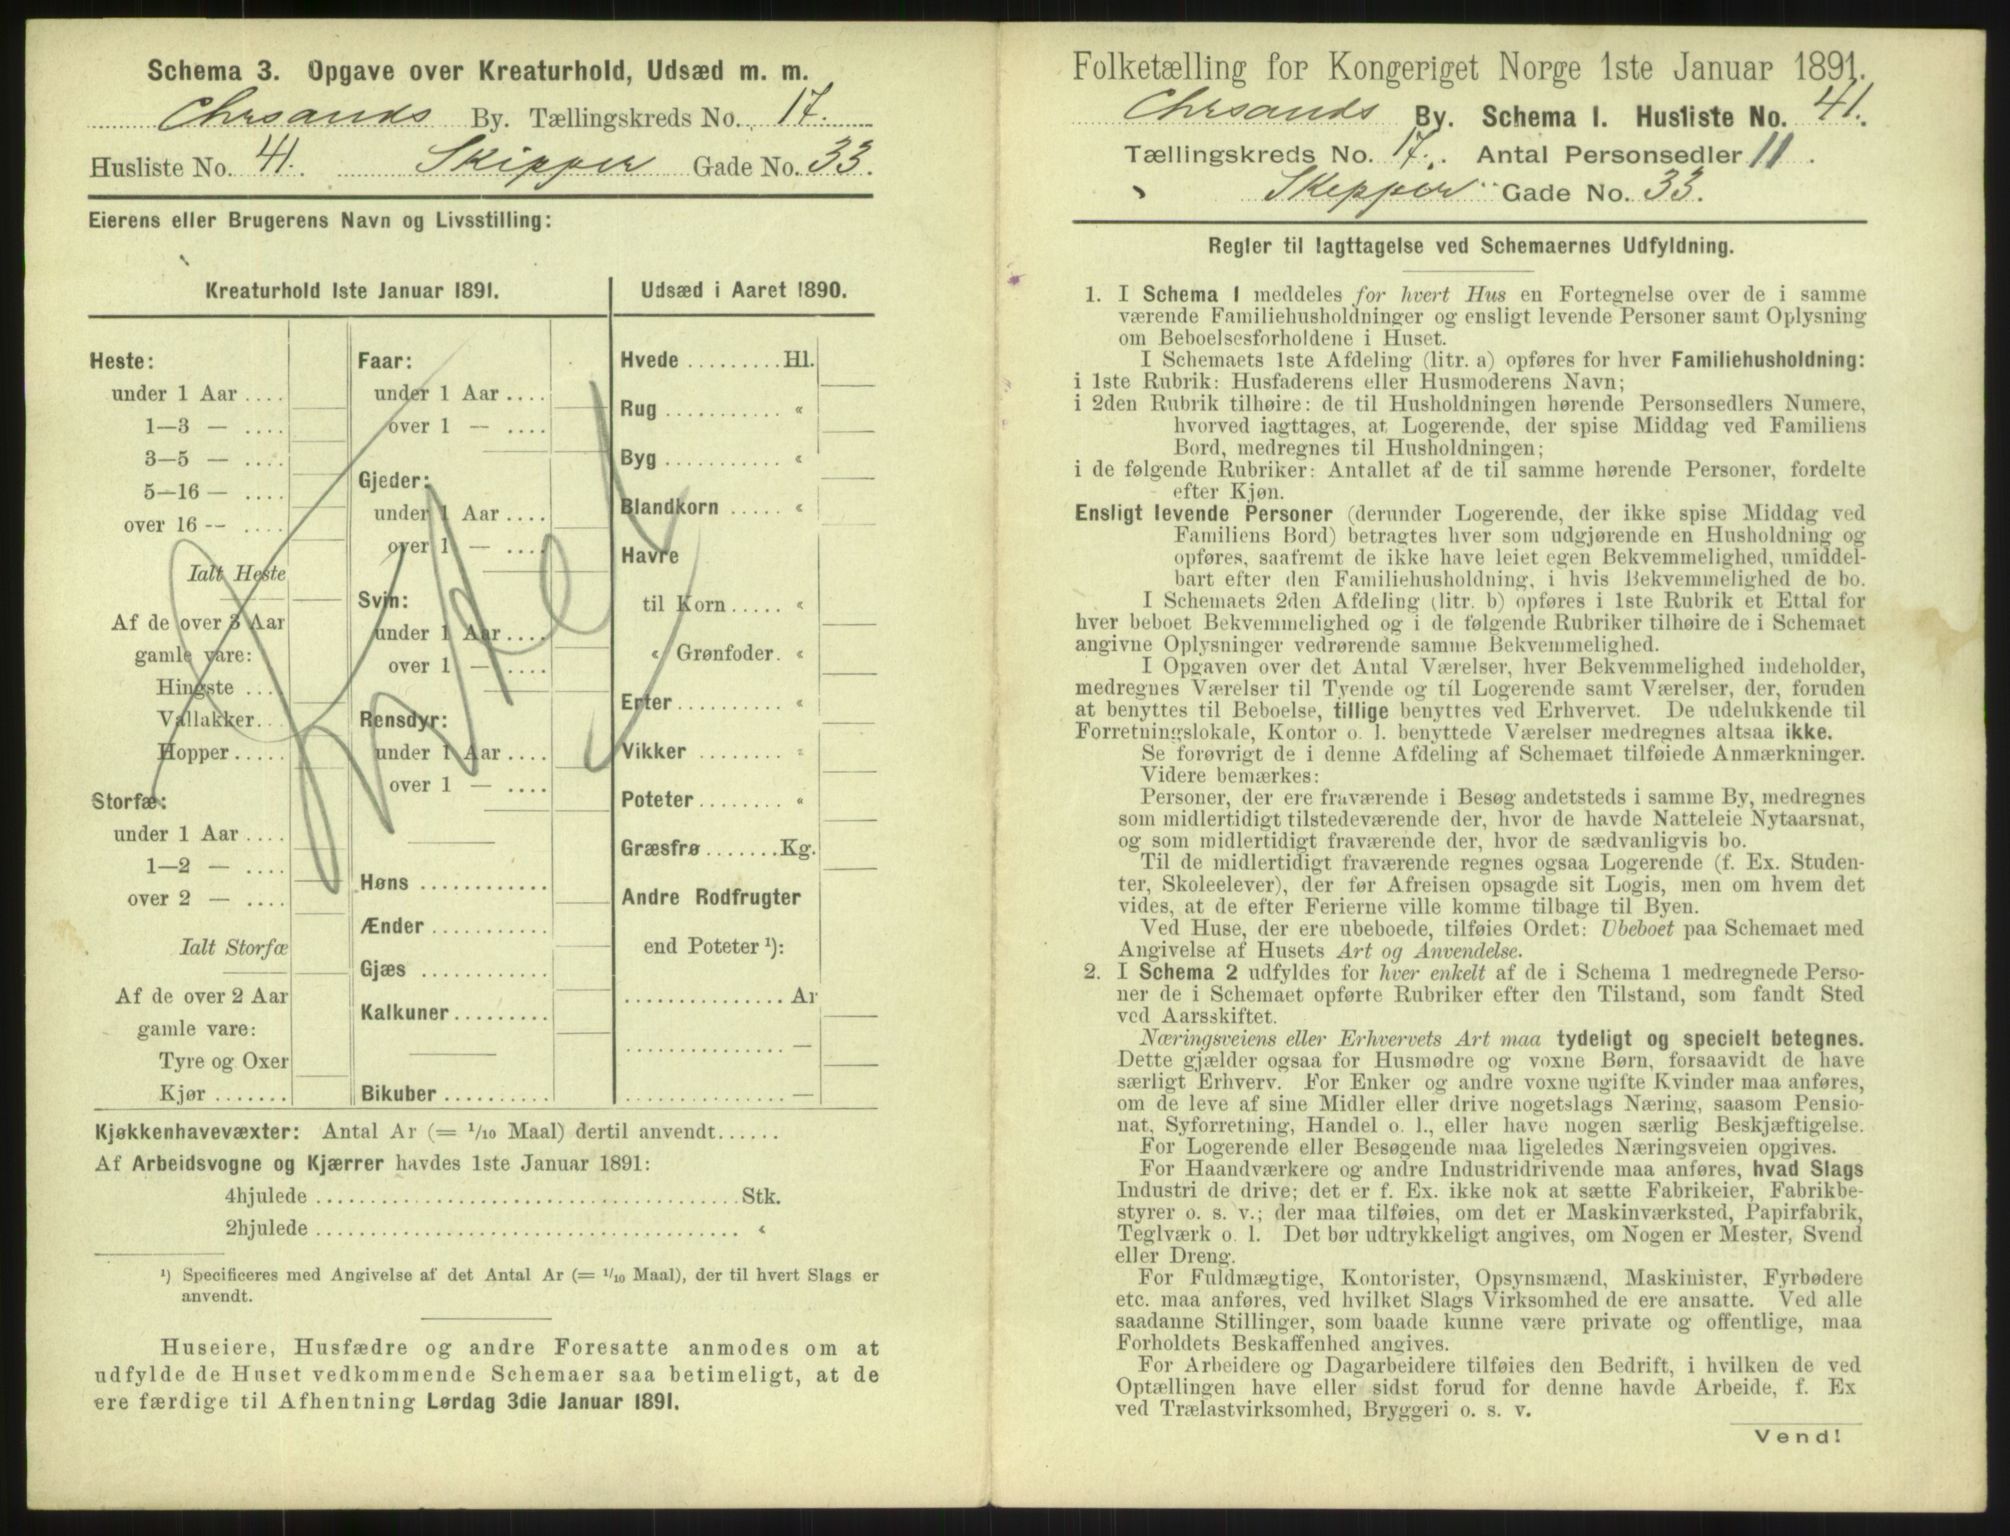 Schema 3. Opgave over Kreaturhold, Udsæd m. m.
Chrsands By. Tællingskreds No. 17.
Husliste No. 41. Skipper Gade No. 33.
Eierens eller Brugerens Navn og Livsstilling:
Kreaturhold 1ste Januar 1891.
Heste:
under 1 Aar ....
1—3 — ....
3—5 — ....
5—16 — ....
over 16 -- ....
Ialt Heste
Af de over 3 Aar
gamle vare:
Hingste ...
Vallakker...
Hopper.....
Storfæ:
under 1 Aar ....
1—2 — ....
over 2 — ....
Ialt Storfæ
Af de over 2 Aar
gamle vare:
Tyre og Oxer
Kjør .......
Faar:
under 1 Aar ....
over 1 — ....
Gjeder:
under 1 Aar ....
over 1 — ....
Svin:
under 1 Aar ....
over 1 — ....
Rensdyr:
under 1 Aar ....
over 1 — ....
Høns ............
Ænder ...........
Gjæs ............
Kalkuner.........
Bikuber ..........
Udsæd i Aaret 1890.
Hvede .........Hl.
Rug ........... «
Byg ........... «
Blandkorn ..... «
Havre
til Korn ..... «
« Grønfoder. «
Erter.......... «
Vikker ........ «
Poteter ........ «
Græsfrø .......Kg.
Andre Rodfrugter
end Poteter ¹):
............... Ar
............... —
............... —
Kjøkkenhavevæxter: Antal Ar (= 1/10 Maal) dertil anvendt......
Af Arbeidsvogne og Kjærrer havdes 1ste Januar 1891:
4hjulede ........................................ Stk.
2hjulede ........................................ «
¹) Specificeres med Angivelse af det Antal Ar (= 1/10 Maal), der til hvert Slags er
anvendt.
Huseiere, Husfædre og andre Foresatte anmodes om at
udfylde de Huset vedkommende Schemaer saa betimeligt, at de
ere færdige til Afhentning Lørdag 3die Januar 1891.
Folketælling for Kongeriget Norge 1ste Januar 1891.
Chrsands By. Schema I. Husliste No. 41.
Tællingskreds No. 17. Antal Personsedler 11.
Skipper Gade No. 33.
Regler til Iagttagelse ved Schemaernes Udfyldning.
1. I Schema 1 meddeles for hvert Hus en Fortegnelse over de i samme
værende Familiehusholdninger og ensligt levende Personer samt Oplysning
om Beboelsesforholdene i Huset.
I Schemaets 1ste Afdeling (litr. a) opføres for hver Familiehusholdning:
i 1ste Rubrik: Husfaderens eller Husmoderens Navn;
i 2den Rubrik tilhøire: de til Husholdningen hørende Personsedlers Numere,
hvorved iagttages, at Logerende, der spise Middag ved Familiens
Bord, medregnes til Husholdningen;
i de følgende Rubriker: Antallet af de til samme hørende Personer, fordelte
efter Kjøn.
Ensligt levende Personer (derunder Logerende, der ikke spise Middag ved
Familiens Bord) betragtes hver som udgjørende en Husholdning og
opføres, saafremt de ikke have leiet egen Bekvemmelighed, umiddel-
bart efter den Familiehusholdning, i hvis Bekvemmelighed de bo.
I Schemaets 2den Afdeling (litr. b) opføres i 1ste Rubrik et Ettal for
hver beboet Bekvemmelighed og i de følgende Rubriker tilhøire de i Schemaet
angivne Oplysninger vedrørende samme Bekvemmelighed.
I Opgaven over det Antal Værelser, hver Bekvemmelighed indeholder,
medregnes Værelser til Tyende og til Logerende samt Værelser, der, foruden
at benyttes til Beboelse, tillige benyttes ved Erhvervet. De udelukkende til
Forretningslokale, Kontor o. l. benyttede Værelser medregnes altsaa ikke.
Se forøvrigt de i denne Afdeling af Schemaet tilføiede Anmærkninger.
Videre bemærkes:
Personer, der ere fraværende i Besøg andetsteds i samme By, medregnes
som midlertidigt tilstedeværende der, hvor de havde Natteleie Nytaarsnat,
og som midlertidigt fraværende der, hvor de sædvanligvis bo.
Til de midlertidigt fraværende regnes ogsaa Logerende (f. Ex. Studen-
ter, Skoleelever), der før Afreisen opsagde sit Logis, men om hvem det
vides, at de efter Ferierne ville komme tilbage til Byen.
Ved Huse, der ere ubeboede, tilføies Ordet: Ubeboet paa Schemaet med
Angivelse af Husets Art og Anvendelse.
2. I Schema 2 udfyldes for hver enkelt af de i Schema 1 medregnede Perso-
ner de i Schemaet opførte Rubriker efter den Tilstand, som fandt Sted
ved Aarsskiftet.
Næringsveiens eller Erhvervets Art maa tydeligt og specielt betegnes.
Dette gjælder ogsaa for Husmødre og voxne Børn, forsaavidt de have
særligt Erhverv. For Enker og andre voxne ugifte Kvinder maa anføres,
om de leve af sine Midler eller drive nogetslags Næring, saasom Pensio-
nat, Syforretning, Handel o. l., eller have nogen særlig Beskjæftigelse.
For Logerende eller Besøgende maa ligeledes Næringsveien opgives.
For Haandværkere og andre Industridrivende maa anføres, hvad Slags
Industri de drive; det er f. Ex. ikke nok at sætte Fabrikeier, Fabrikbe-
styrer o. s. v.; der maa tilføies, om det er Maskinværksted, Papirfabrik,
Teglværk o. l. Det bør udtrykkeligt angives, om Nogen er Mester, Svend
eller Dreng.
For Fuldmægtige, Kontorister, Opsynsmænd, Maskinister, Fyrbødere
etc. maa anføres, ved hvilket Slags Virksomhed de ere ansatte. Ved alle
saadanne Stillinger, som baade kunne være private og offentlige, maa
Forholdets Beskaffenhed angives.
For Arbeidere og Dagarbeidere tilføies den Bedrift, i hvilken de ved
Optællingen have eller sidst forud for denne havde Arbeide, f. Ex
ved Trælastvirksomhed, Bryggeri o. s. v.
Vend!